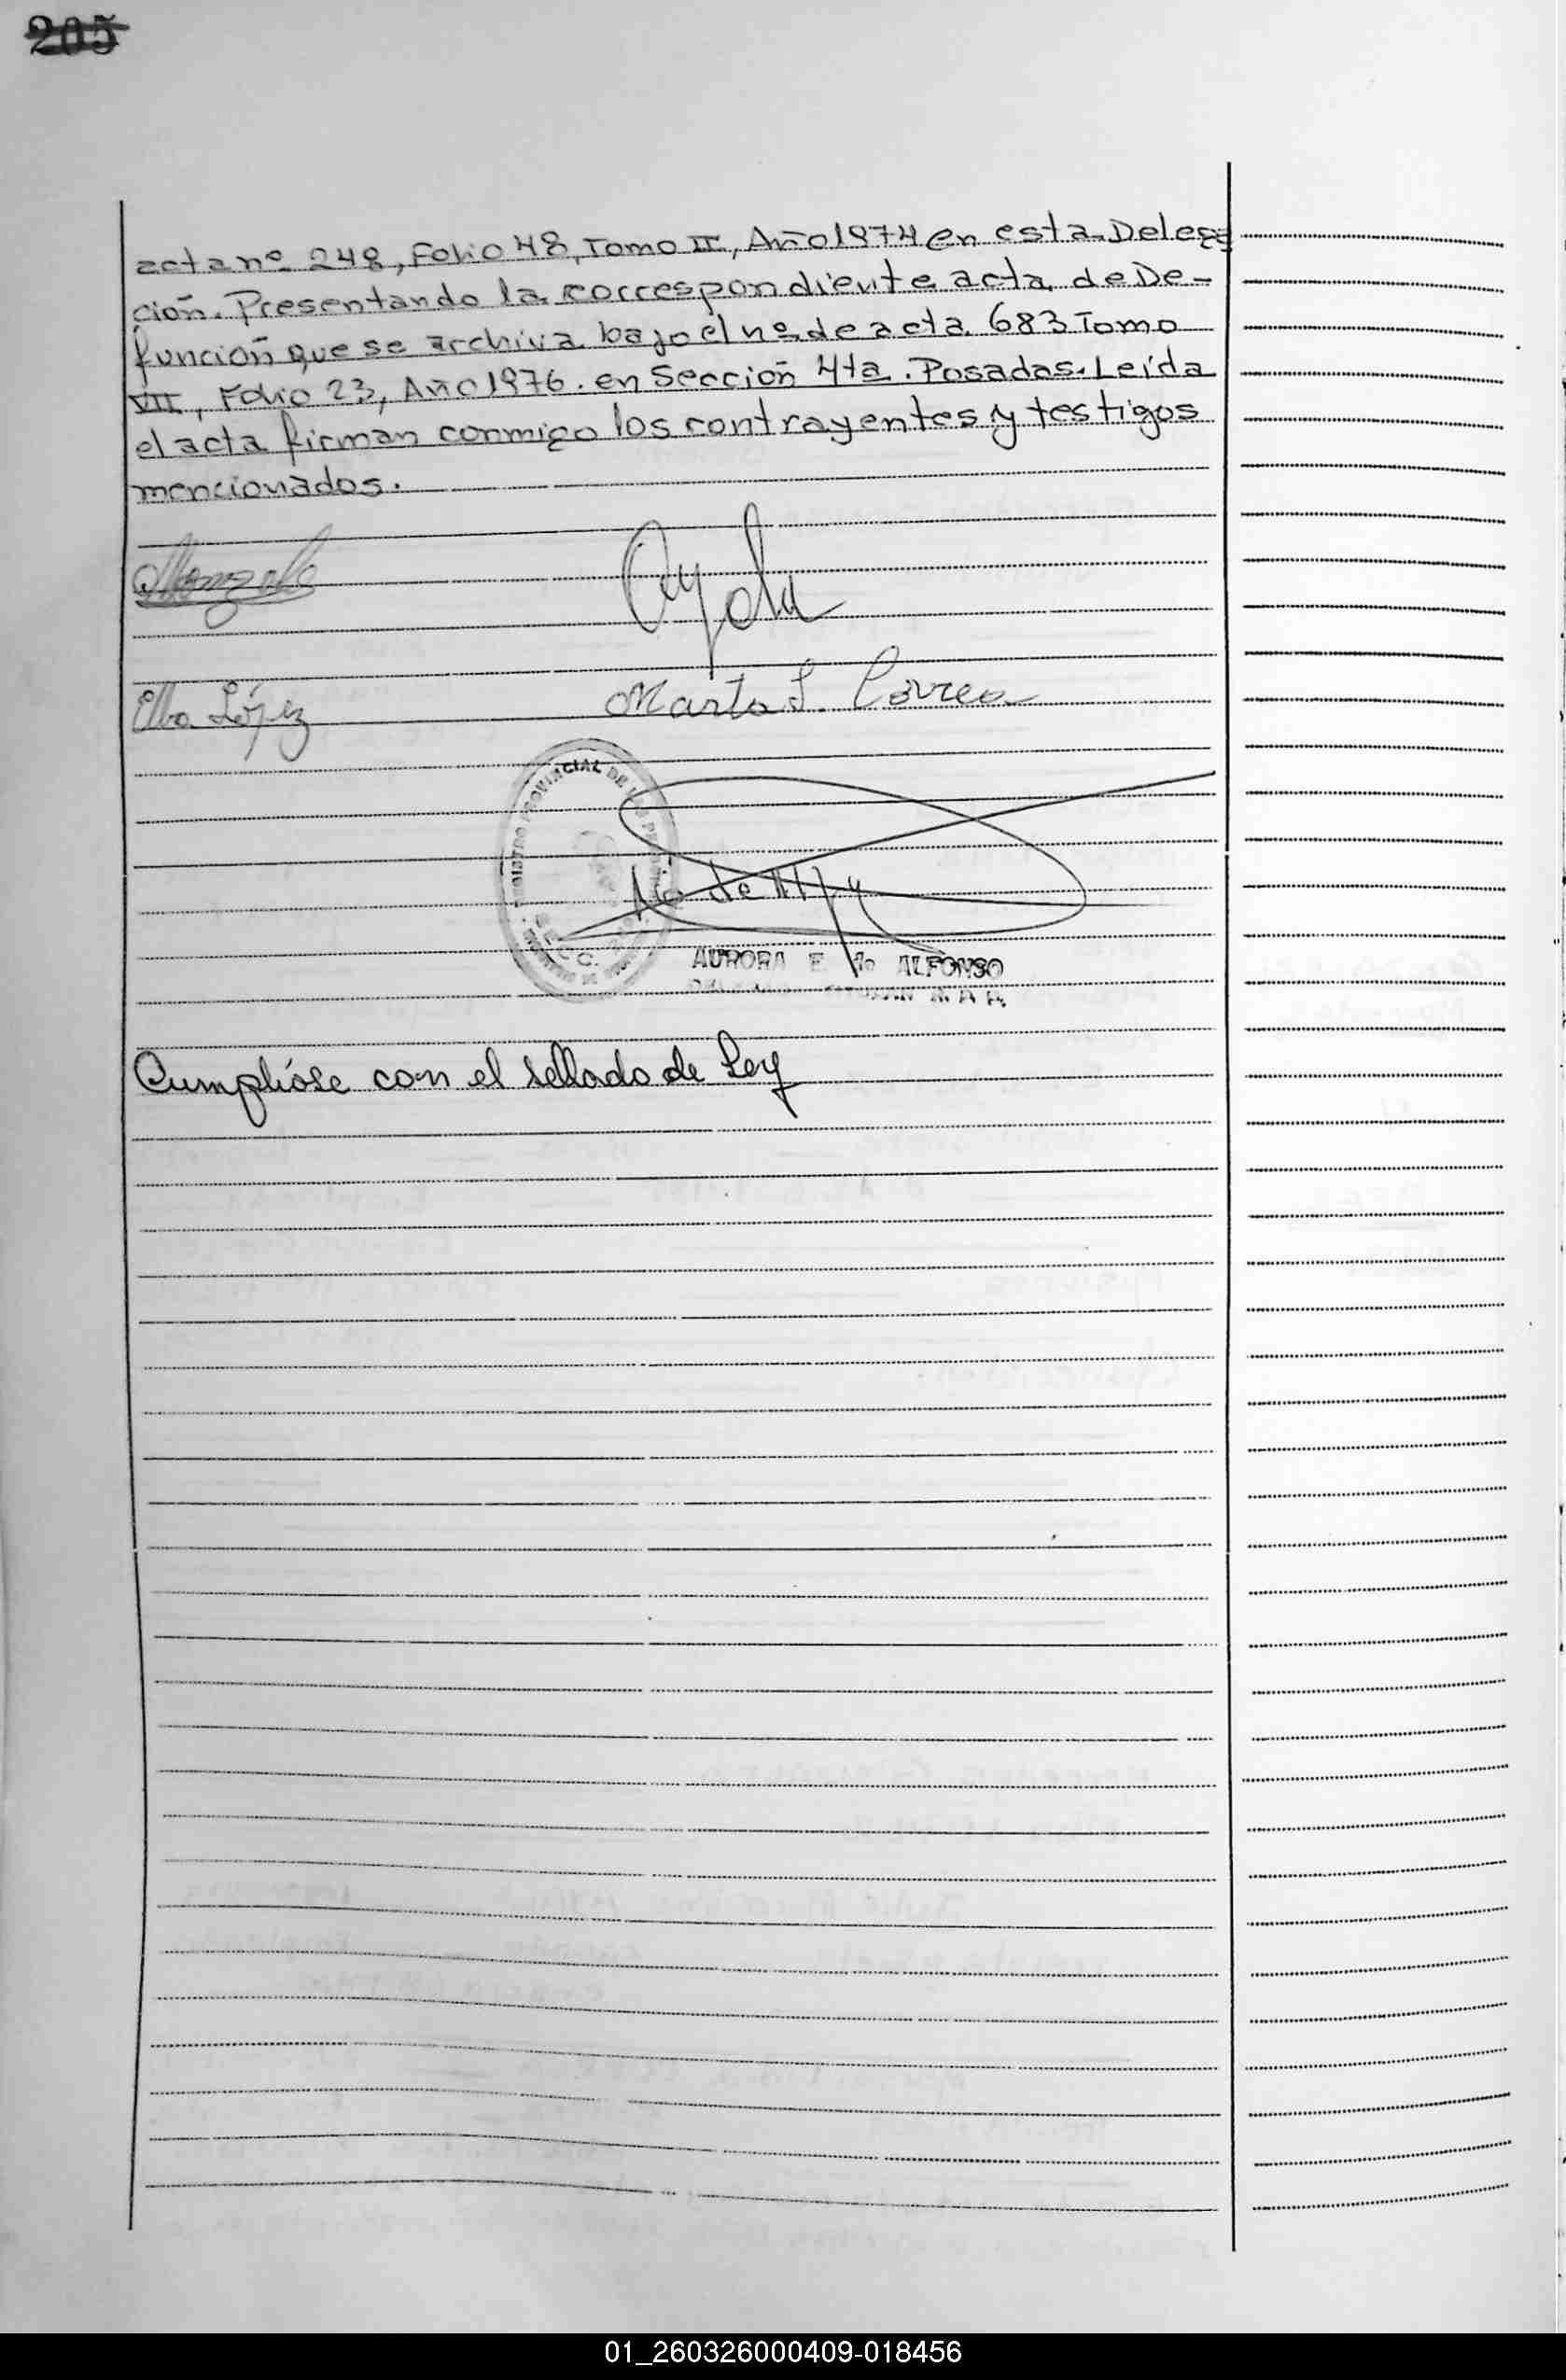 205
acta nº 248, Folio 48, Tomo II, Año 1974 en esta Delega
ción. Presentando la correspondiente acta de De-
función que se archiva bajo el nº de acta 683 Tomo
VII, Folio 23, Año 1976. en Sección 4ta. Posadas. Leída
el acta firman conmigo los contrayentes y testigos
mencionados.
Ayala
Elba López Marta S. Correa
REGISTRO PROVINCIAL DE LAS PERSONAS
AURORA E ALFONSO
Cumplióse con el sellado de Ley
01_260326000409-018456